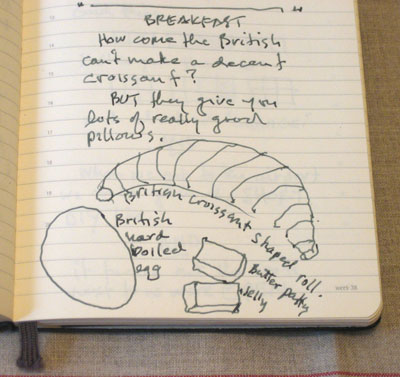 BREAKFAST
How come the British
can't make a decent
croissant?
BUT they give you
lots of really good
pillows.
British croissant shaped roll.
British
hard
boiled
egg
Butter patty
Jelly
week 38